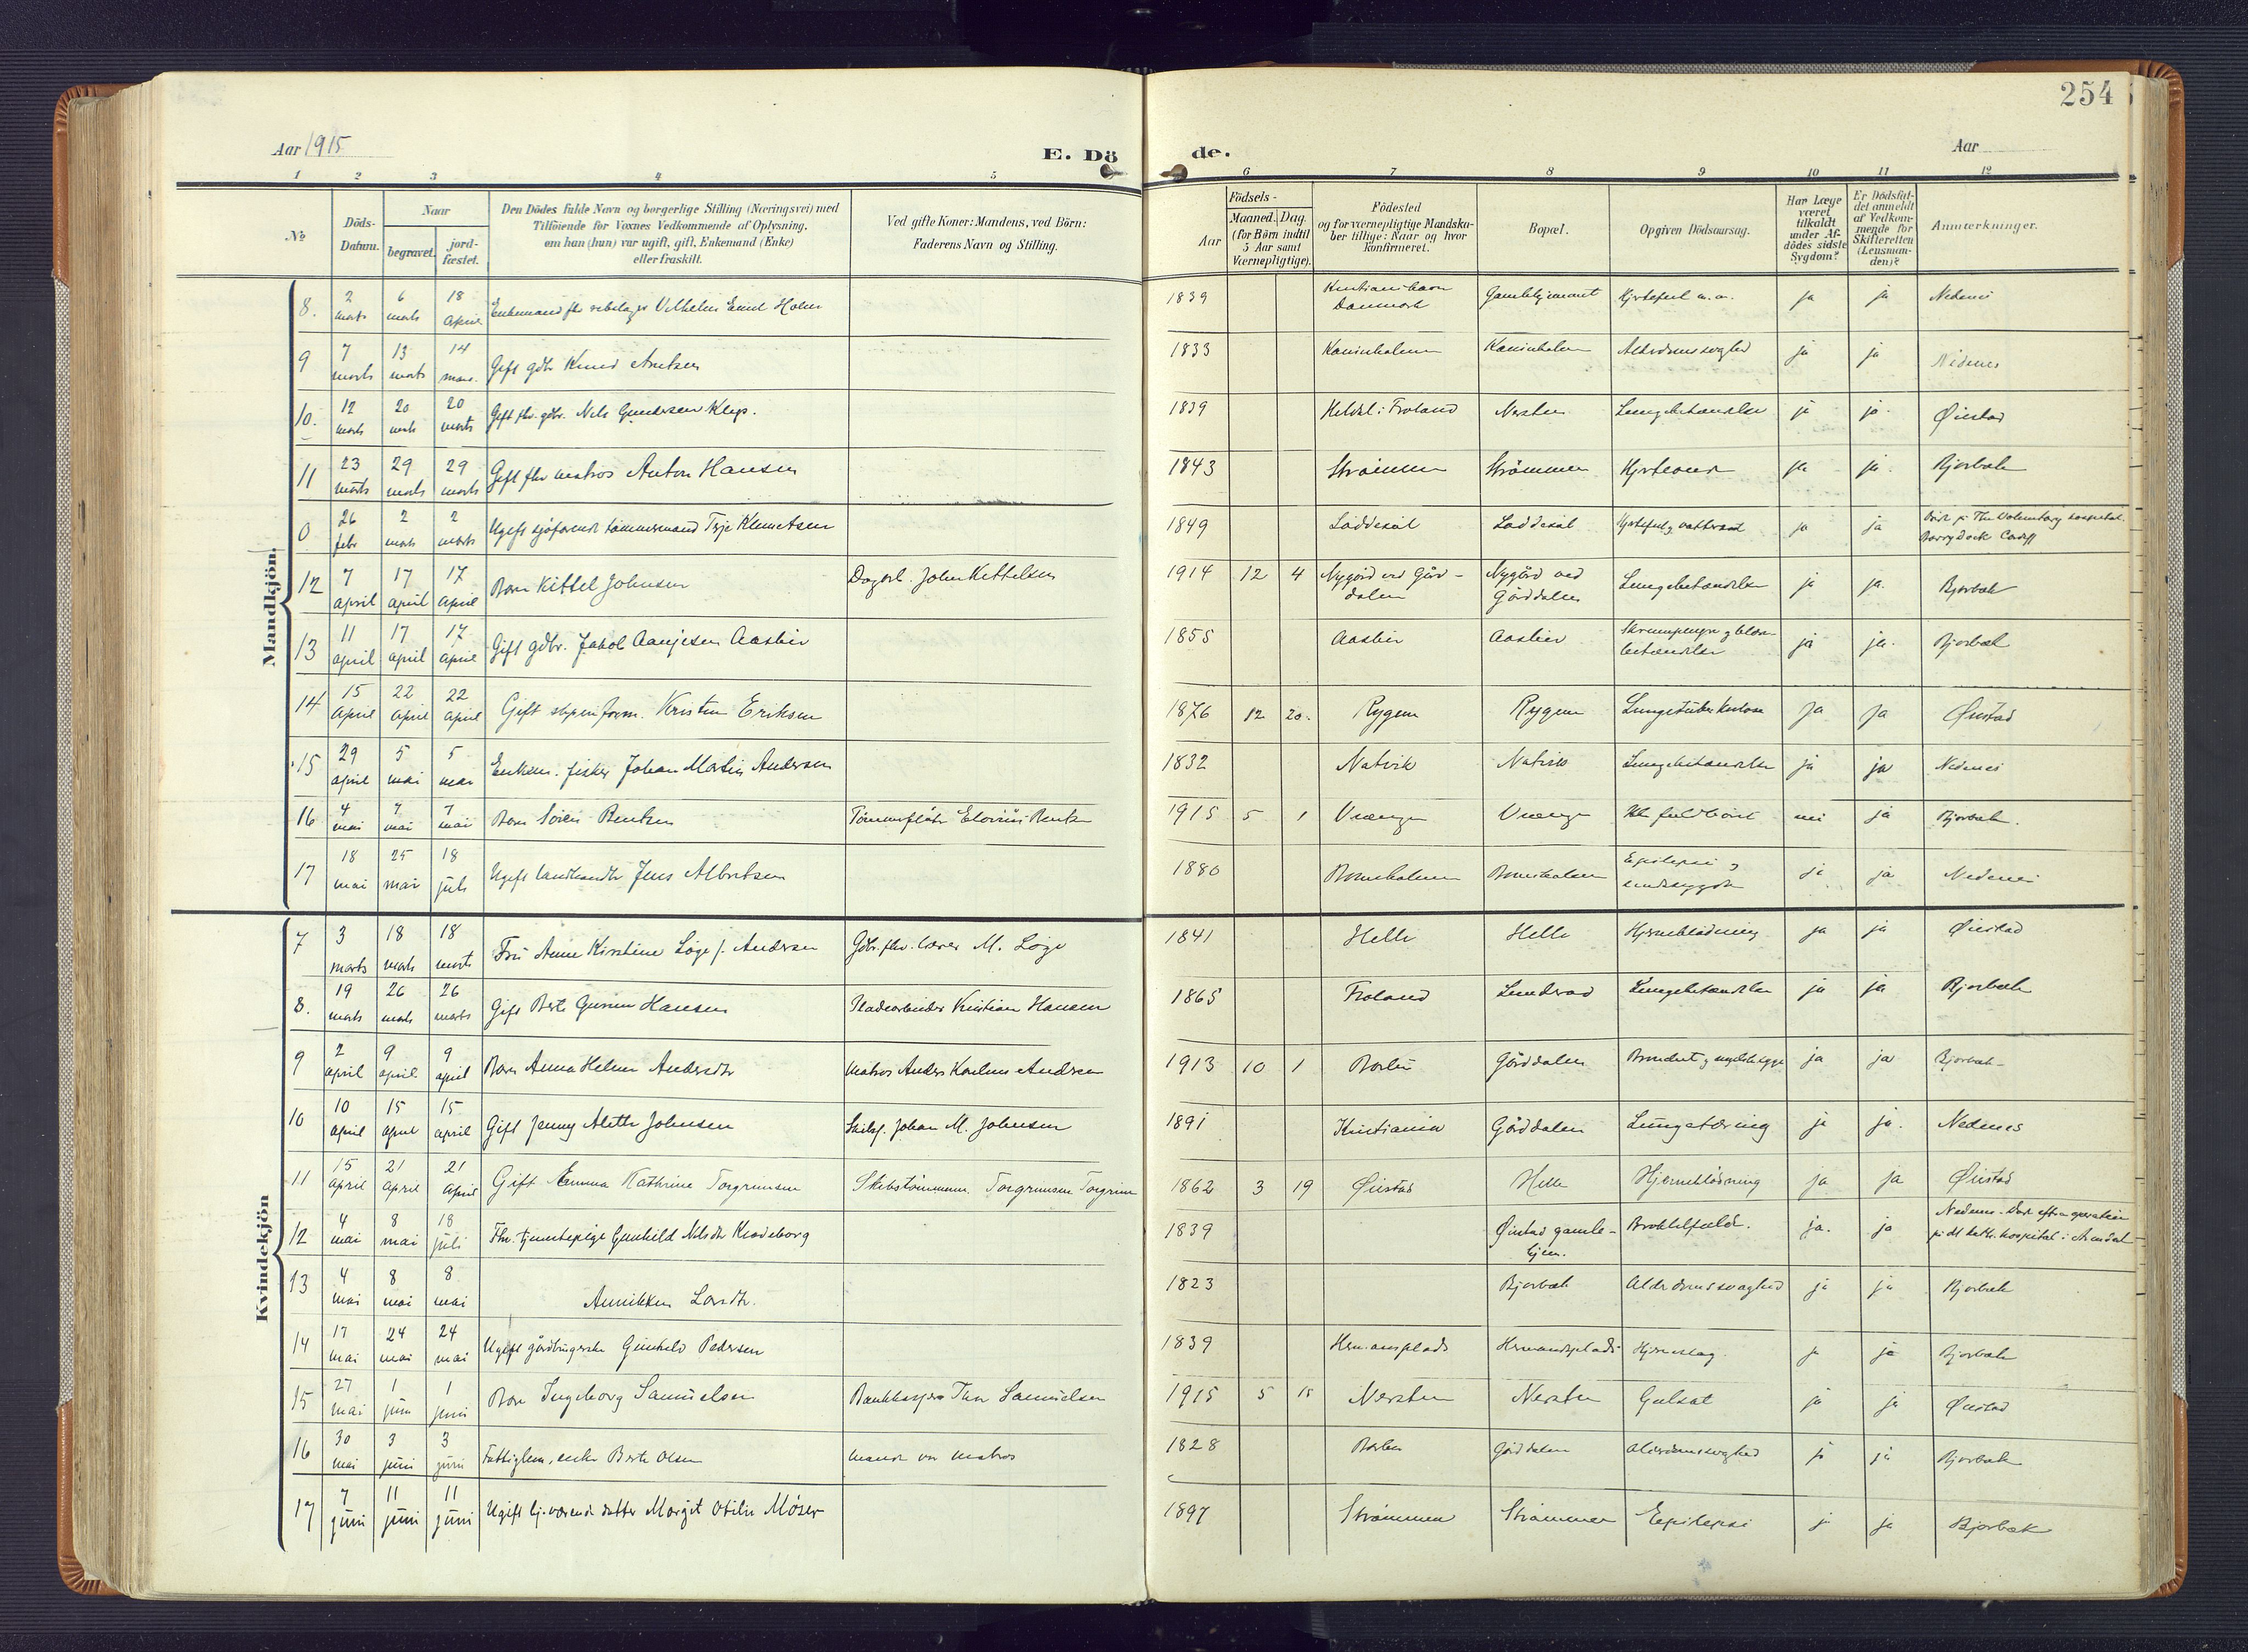 254
Aar 1915
E. Dö
de.
Aar
1 2 3 4 5 6 7 8 9 10 11 12
№
Döds-Datum.
Naar
begravet.
jord-fæstet.
Den Dödes fulde Navn og borgerlige Stilling (Næringsvei) med
Tilföiende for Voxnes Vedkommende af Oplysning,
om han (hun) var ugift, gift, Enkemand (Enke)
eller fraskilt.
Ved gifte Koner: Mandens, ved Börn:
Faderens Navn og Stilling.
Födsels-
Aar
Maaned. Dag.
(for Börn indtil
5 Aar samt
Værnepligtige).
Födested
og for værnepligtige Mandska-
ber tillige: Naar og hvor
konfirmeret.
Bopæl.
Opgiven Dödsaarsag.
Har Læge
været
tilkaldt
under Af-
dödes sidste
Sygdom?
Er Dödsfal-
det anmeldt
af Vedkom-
mende for
Skifteretten
(Lensman-
den)?
Anmerkninger.
Mandkjön.
8. 2 marts 6 marts 18 april Enkemand fhv Vilhelm Emil Holm 1839 Danmark ja ja Nedenes
9 7 marts 13 marts 14 mars. Gift gdbr Knud Arntsen 1833 Kaninholmen Kaninholmen Alderdomssvaghed ja ja Nedenes
10. 12 marts 20 marts 20 marts Gift fhv. gdbr. Nils Gundersen Klep. 1839 Heldal i Froland Nersten Lungebetændelse ja ja. Øiestad
11 23 marts 29 marts 29 marts Gift fhv matros Anton Hansen 1843 Strømmen Strømmen Hjerteonde ja ja. Bjorbæk
0 26 febr 2 marts 2 marts Ugift sjøfarende tømmermand Terje Klemetsen 1849 Løddesøl Løddesøl Hjertefeil og vattersot ja ja Døde på The Voluntary hospital. Barry Dock Cardiff
12 7 april 17 april 17 april Barn Kittel Johnsen Dagarb. John Kittelsen 1914 12 4 Nygård ved Gård-dalen Nygård ved Gårddalen Lungebetændelse ja ja. Bjorbæk
13 11 april 17 april 17 april Gift gdbr. Jakob Aanjesen Aasbie 1855 Aasbie Aasbie ja ja. Bjorbæk
14 15 april 22 april 22 april Gift Kristen Eriksen 1876 12 20. Rygene Rygene Lungetuberkulose ja ja Øiestad
15 29 april 5 mai 5 mai Enkem. fisker Johan Martin Andersen 1832 Natvik Natvik Lungebetændelse ja ja Nedenes
16 4 mai 7 mai 7 mai Barn Søren Bentsen 1915 5 1 Vrænge Vrænge Ikke fuldbaaret nei ja Bjorbæk.
17 18 mai 25 mai 18 juli Ugift landhandler Jens Albretsen 1880 Bommeholmen Bommeholmen Epilepsi og sindssygdom ja ja Nedenes
Kvindekjön
7 3 marts 18 marts 18 marts Fru Anne Kirstine Løge f. Andersen Gdbr. fhv. lærer M. Løge 1841 Helle Helle Hjerneblødning ja ja Øiestad
8. 19 marts 26 marts 26 marts Gift Berte Gurine Hansen Pladsarbeider Kristian Hansen 1865 Froland Lunderød Lungebetændelse ja ja Bjorbæk
9 2 april 9 april 9 april Barn Anna Helene Andersdtr matros Anders Karelius Andersen 1913 10 1 Gårddalen ja ja Bjorbæk
10 10 april 15 april 15 april Gift Jenny Alette Johnsen Johan M. Johnsen 1891 Kristiania Gårddalen Lungetæring ja ja. Nedenes
11 15 april 21 april 21 april Gift Emma Kathrine Torgrimsen Skibstømmerm. Torgrimsen Torgrim 1862 3 19 Øiestad Helle Hjerneblødning ja ja Øiestad
12 4 mai 8 mai 18 juli Fhv. tjenestepige Gunhild Nilsdtr 1839 Øiestad gamle-hjem. ja. ja Nedenes. Døde efter operation på det kath. hospital i Arendal
13 4 mai 8 mai 8 mai Annikken Larsdtr. 1823 Bjorbæk Alderdomssvaghed ja ja Bjorbæk
14 17 mai 24 mai 24 mai Ugift gårdbrugerske Gunhild Pedersen 1839 Hermansplads Hermansplads Hjerneslag. ja ja Bjorbæk
15 27 mai 1 juni 1 juni Barn Ingeborg Samuelsen Bankkasserer Thor Samuelsen 1915 5 15 Nersten Nersten Gulsot ja ja Øiestad
16 30 mai 3 juni 3 juni Fattiglem, enke Berte Olsen mand var matros 1828 Gårddalen Alderdomssvaghed ja ja Bjorbæk
17 7 juni 11 juni 11 juni Ugift hj. værende datter Margit Otilie Møser 1897 Strømmen Strømmen Epilepsi ja ja Bjorbæk